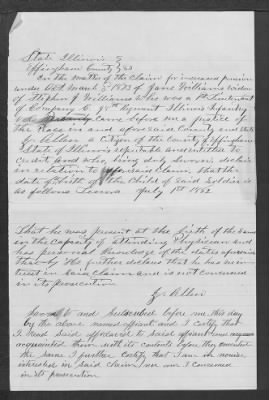 State Illinois }
Effingham County } SS
In the matter of the Claim for increased pension
under Act March 3 1873 of Jane Williams widow
of Stephen J Williams who was a 1st Lieutenant
of Company C, 98th Regiment Illinois Infantry
Vol. came before me a Justice of
the Peace in and aforesaid County and State
Allen a Citizen of the County of Effingham
State of Illinois reputable and entitled to
credit and who, being duly sworn, declares
in relation to aforesaid Claim, that the
date of birth of the Child of said Soldier is
as follows July 1st 1862
That he was present at the birth of the same
in the capacity of attending Physician and
has personal knowledge of the dates aforesaid
He further declares that he has no in-
terest in said Claim and is not concerned
in its prosecution
Allen
Sworn to and Subscribed before me this day
by the above named affiant and I certify that
I read said affidavit to said affiant and
acquainted them with its contents before they executed
the same I further Certify that I am in nowise
interested in said Claim nor am I concerned
in its prosecution